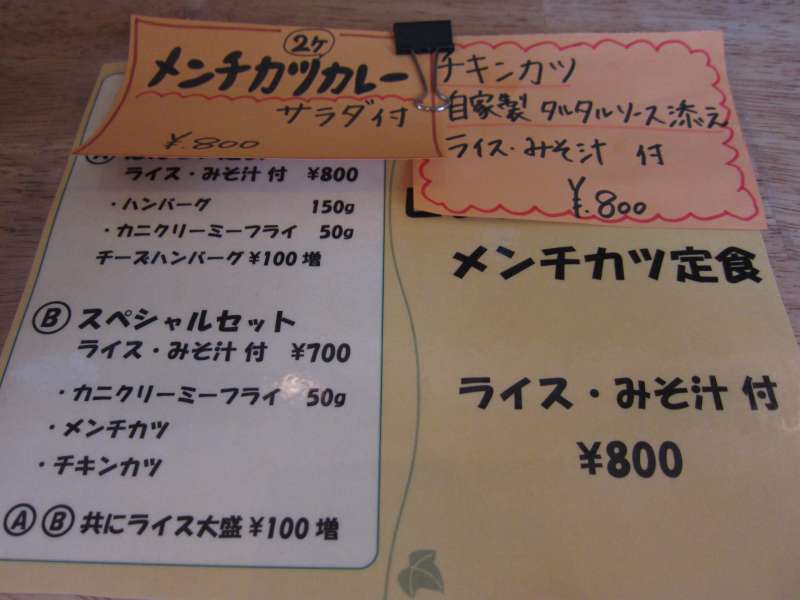 2ケ
メンチカツカレー
サラダ付
¥800
チキンカツ
自家製 タルタルソース添え
ライス・みそ汁 付
¥800
ライス・みそ汁 付 ¥800
・ハンバーグ 150g
・カニクリーミーフライ 50g
チーズハンバーグ ¥100 増
Ⓑ スペシャルセット
ライス・みそ汁 付 ¥700
・カニクリーミーフライ 50g
・メンチカツ
・チキンカツ
Ⓐ Ⓑ 共にライス大盛 ¥100 増
メンチカツ定食
ライス・みそ汁 付
¥800